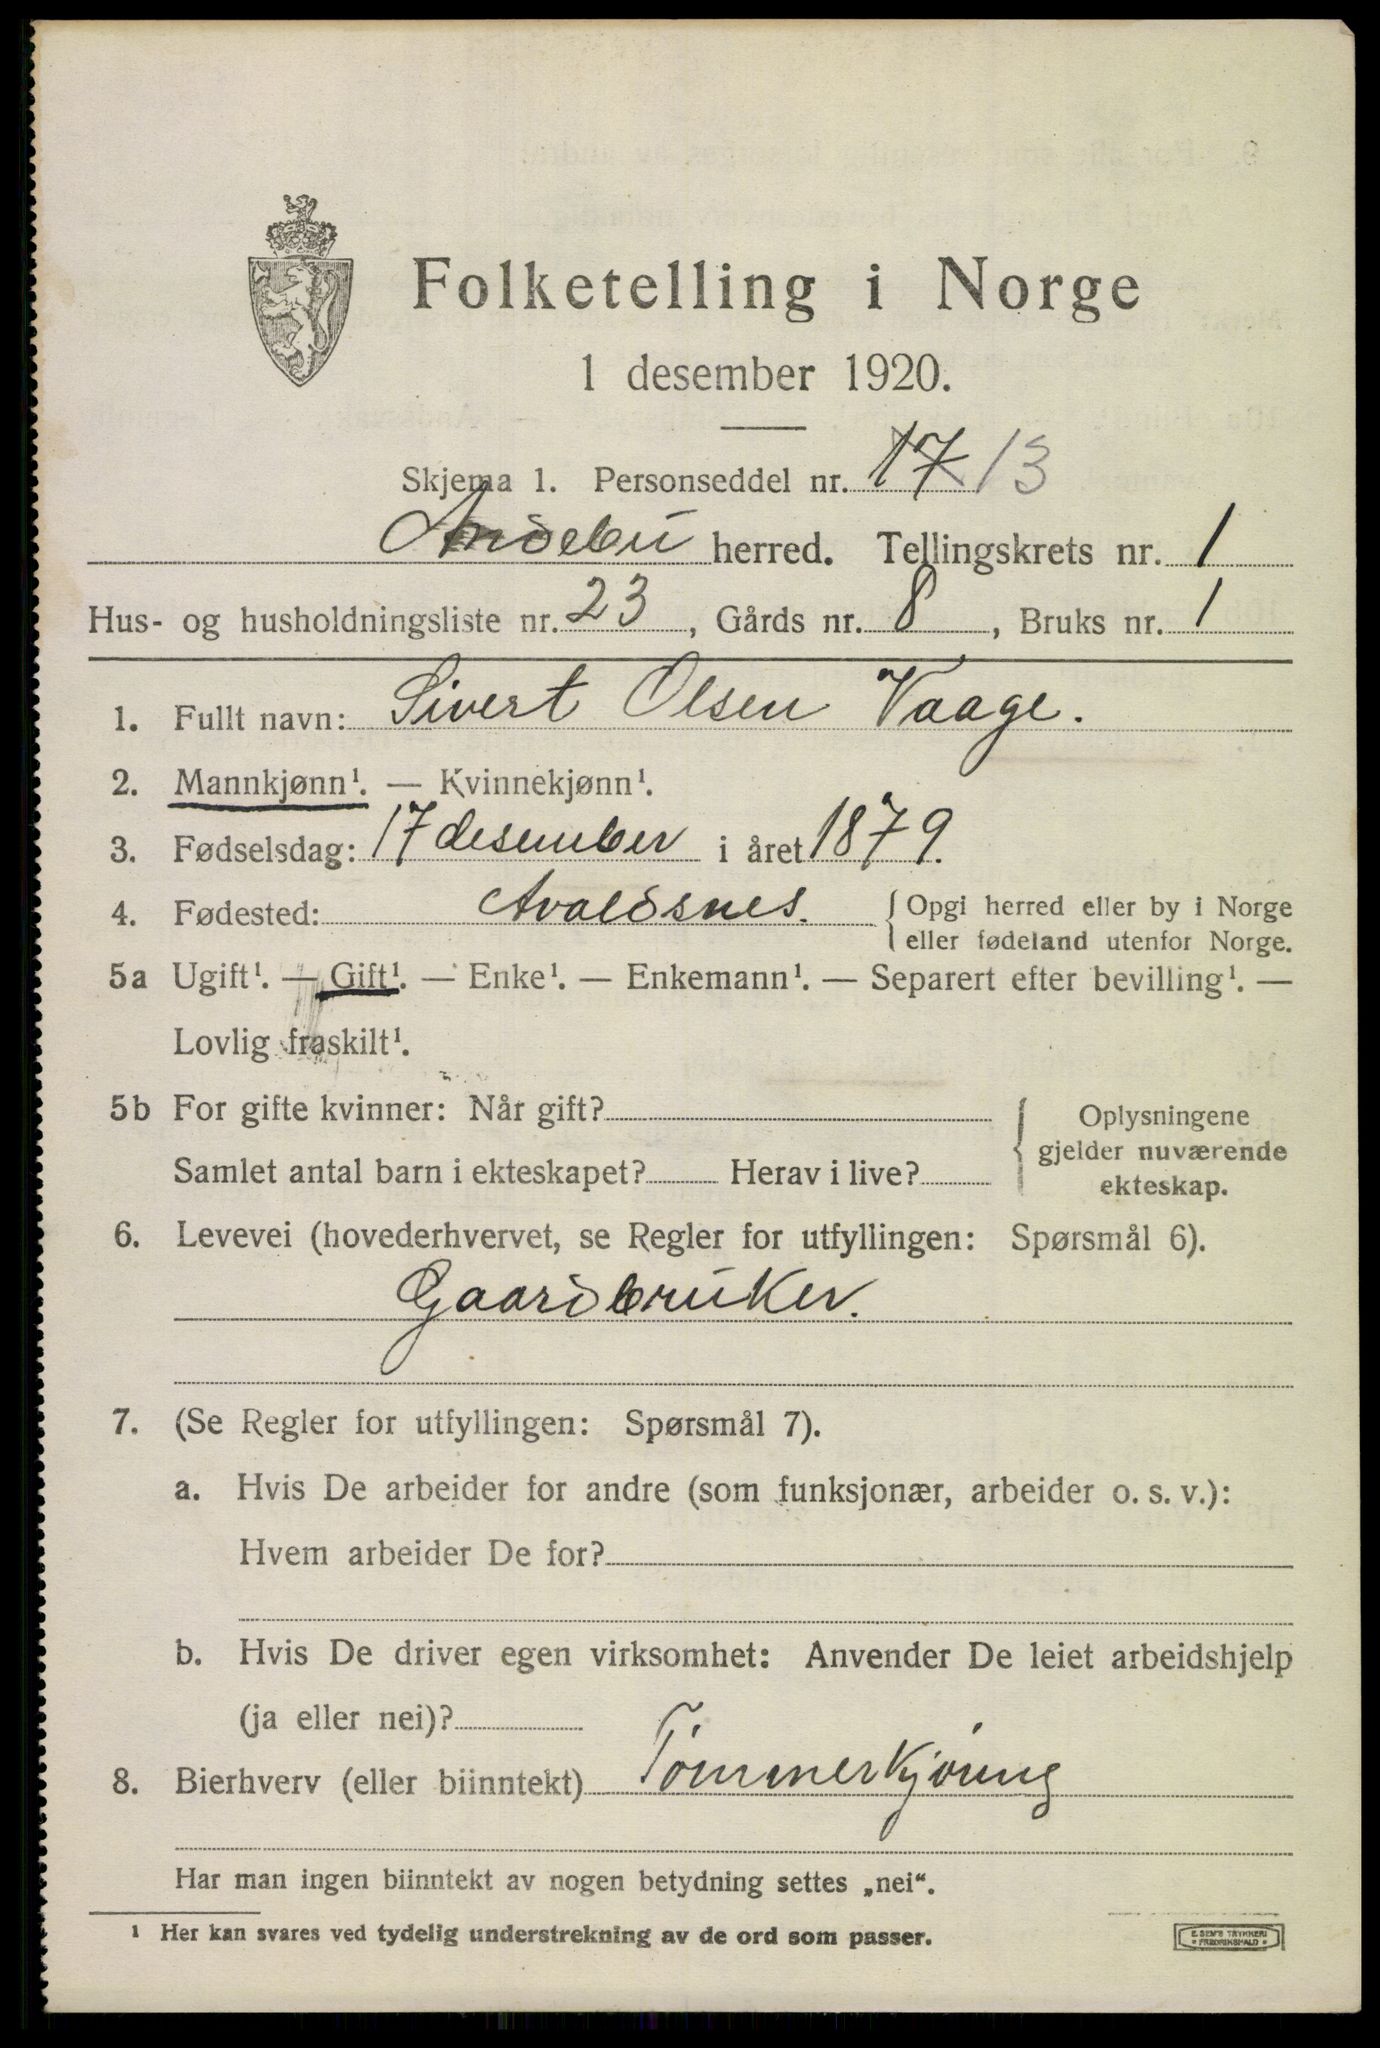 Folketelling i Norge
1 desember 1920.
Skjema 1. Personseddel nr. 17 13
Andebu herred. Tellingskrets nr. 1
Hus- og husholdningsliste nr. 23, Gårds nr. 8, Bruks nr. 1
1. Fullt navn: Sivert Olsen Vaage.
2. Mannkjønn¹. — Kvinnekjønn¹.
3. Fødselsdag: 17 desember i året 1879.
4. Fødested: Avaldsnes. { Opgi herred eller by i Norge
eller fødeland utenfor Norge.
5a Ugift¹. — Gift¹. — Enke¹. — Enkemann¹. — Separert efter bevilling¹. —
Lovlig fraskilt¹.
5b For gifte kvinner: Når gift?
Samlet antal barn i ekteskapet? Herav i live?
{ Oplysningene
gjelder nuværende
ekteskap.
6. Levevei (hovederhvervet, se Regler for utfyllingen: Spørsmål 6).
Gaardbruker.
7. (Se Regler for utfyllingen: Spørsmål 7).
a. Hvis De arbeider for andre (som funksjonær, arbeider o. s. v.):
Hvem arbeider De for?
b. Hvis De driver egen virksomhet: Anvender De leiet arbeidshjelp
(ja eller nei)?
8. Bierhverv (eller biinntekt) Tömmerkjöring
Har man ingen biinntekt av nogen betydning settes „nei“.
¹ Her kan svares ved tydelig understrekning av de ord som passer.
E. SEM'S TRYKKERI
FREDRIKSHALD